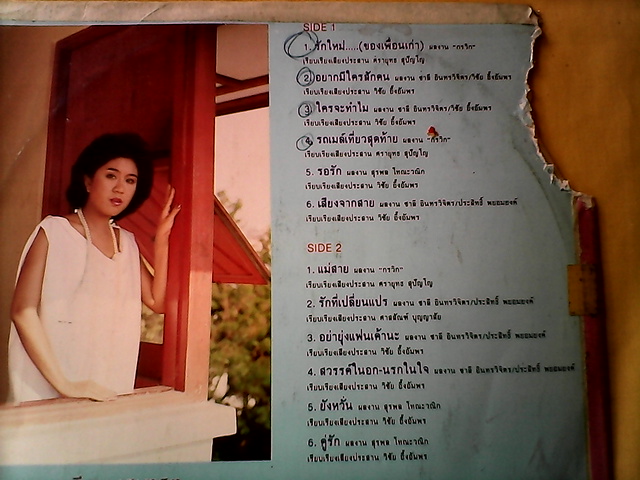 SIDE 1
1. รักใหม่.....(ของเพื่อนเก่า) ผลงาน "กรวิก"
เรียบเรียงเสียงประสาน ศรายุทธ สุปัญโญ
2. อยากมีใครสักคน ผลงาน ชาลี อินทรวิจิตร/วิชัย อึ้งอัมพร
เรียบเรียงเสียงประสาน วิชัย อึ้งอัมพร
3. ใครจะทำไม ผลงาน ชาลี อินทรวิจิตร/วิชัย อึ้งอัมพร
เรียบเรียงเสียงประสาน วิชัย อึ้งอัมพร
4. รถเมล์เที่ยวสุดท้าย ผลงาน "กรวิก"
เรียบเรียงเสียงประสาน ศรายุทธ สุปัญโญ
5. รอรัก ผลงาน สุรพล โทณะวณิก
เรียบเรียงเสียงประสาน วิชัย อึ้งอัมพร
6. เสียงจากสาย ผลงาน ชาลี อินทรวิจิตร/ประสิทธิ์ พยอมยงค์
เรียบเรียงเสียงประสาน วิชัย อึ้งอัมพร
SIDE 2
1. แม่สาย ผลงาน "กรวิก"
เรียบเรียงเสียงประสาน ศรายุทธ สุปัญโญ
2. รักที่เปลี่ยนแปร ผลงาน ชาลี อินทรวิจิตร/ประสิทธิ์ พยอมยงค์
เรียบเรียงเสียงประสาน บุญญาลัย
3. อย่ายุ่งแฟนเค้านะ ผลงาน ชาลี อินทรวิจิตร/ประสิทธิ์ พยอมยงค์
เรียบเรียงเสียงประสาน วิชัย อึ้งอัมพร
4. สวรรค์ในอก-นรกในใจ ผลงาน ชาลี อินทรวิจิตร/ประสิทธิ์ พยอมยงค์
เรียบเรียงเสียงประสาน วิชัย อึ้งอัมพร
5. ยังหวั่น ผลงาน สุรพล โทณะวณิก
เรียบเรียงเสียงประสาน วิชัย อึ้งอัมพร
6. คู่รัก ผลงาน สุรพล โทณะวณิก
เรียบเรียงเสียงประสาน วิชัย อึ้งอัมพร